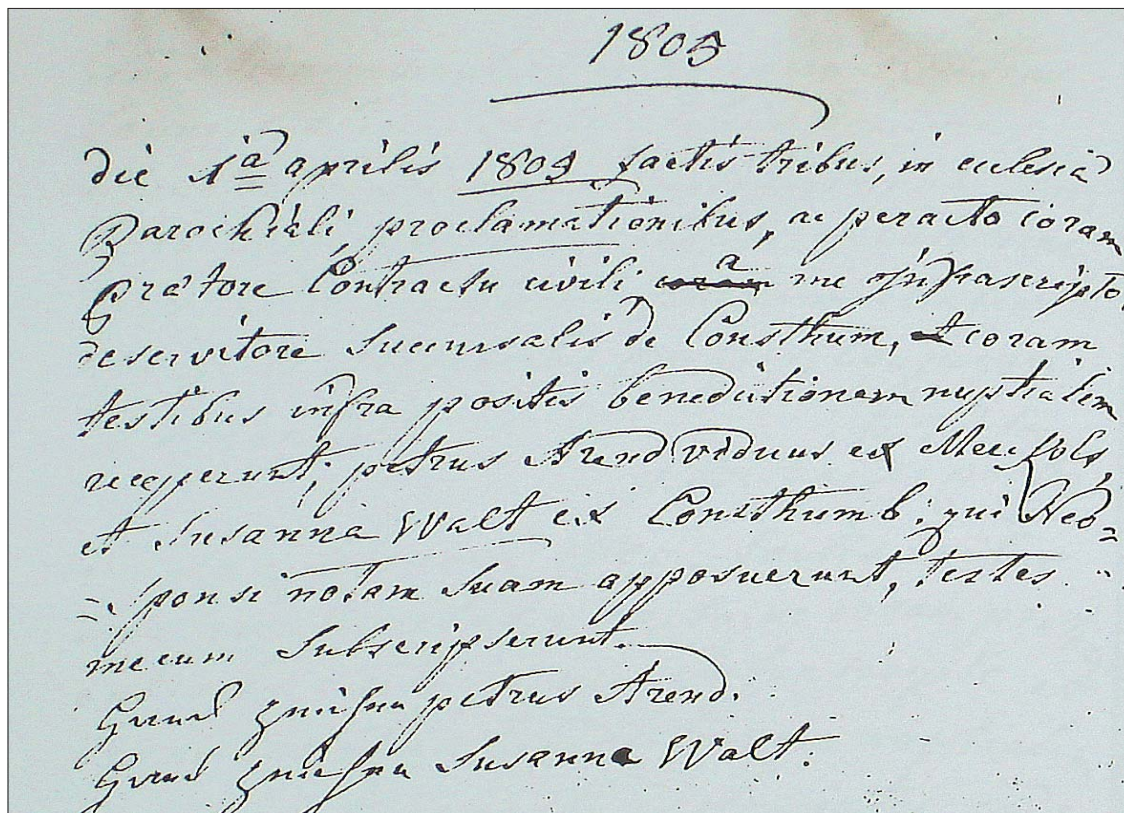 1805
die 1ª aprilis 1805 factis tribus, in ecclesia
Parochiali proclamationibus, ac peracto coram
Prætore Contractu civili a me Infrascripto
deservitore Succursalis de Consthum, coram
testibus infra positis benedictionem nuptialem
receperunt; petrus Arend viduus ex
et Susanna Walt ex Consthumb: qui Neo=
=sponsi notam suam apposuerunt, testes
mecum Subscripserunt.
Hand zeichen petrus Arend.
Hand zeichen Susanna Walt.